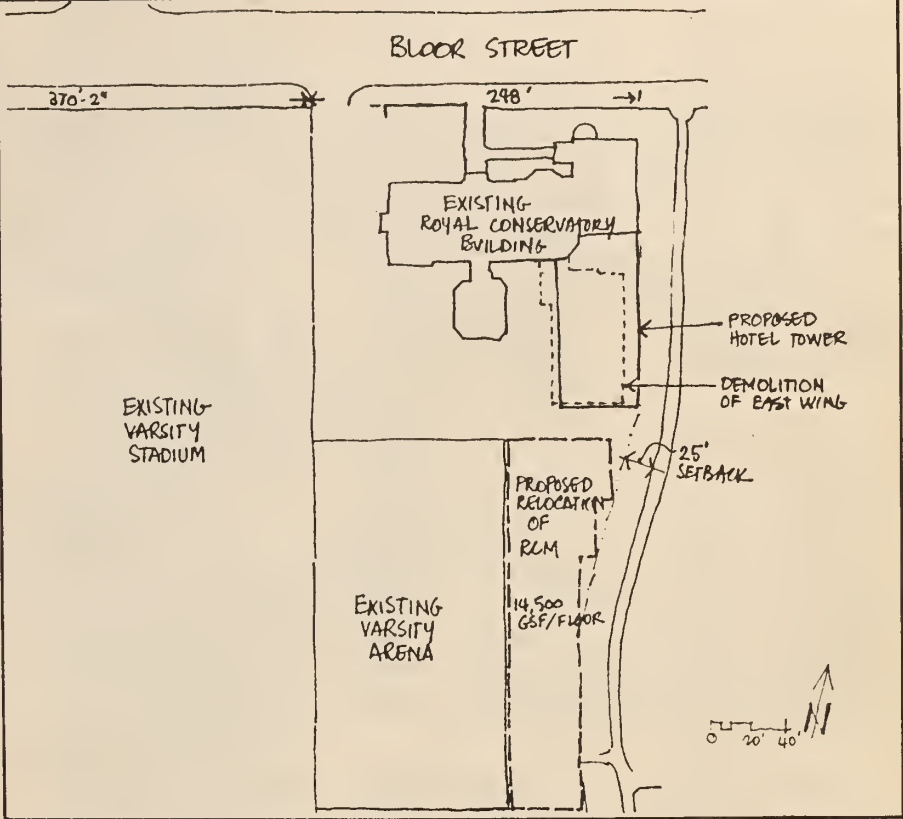 BLOOR STREET
370'-2"
248'
EXISTING
ROYAL CONSERVATORY
BUILDING
PROPOSED
HOTEL TOWER
DEMOLITION
OF EAST WING
EXISTING
VARSITY
STADIUM
25'
SETBACK
PROPOSED
RELOCATION
OF
RCM
14,500
GSF/FLOOR
EXISTING
VARSITY
ARENA
N
0 20' 40'